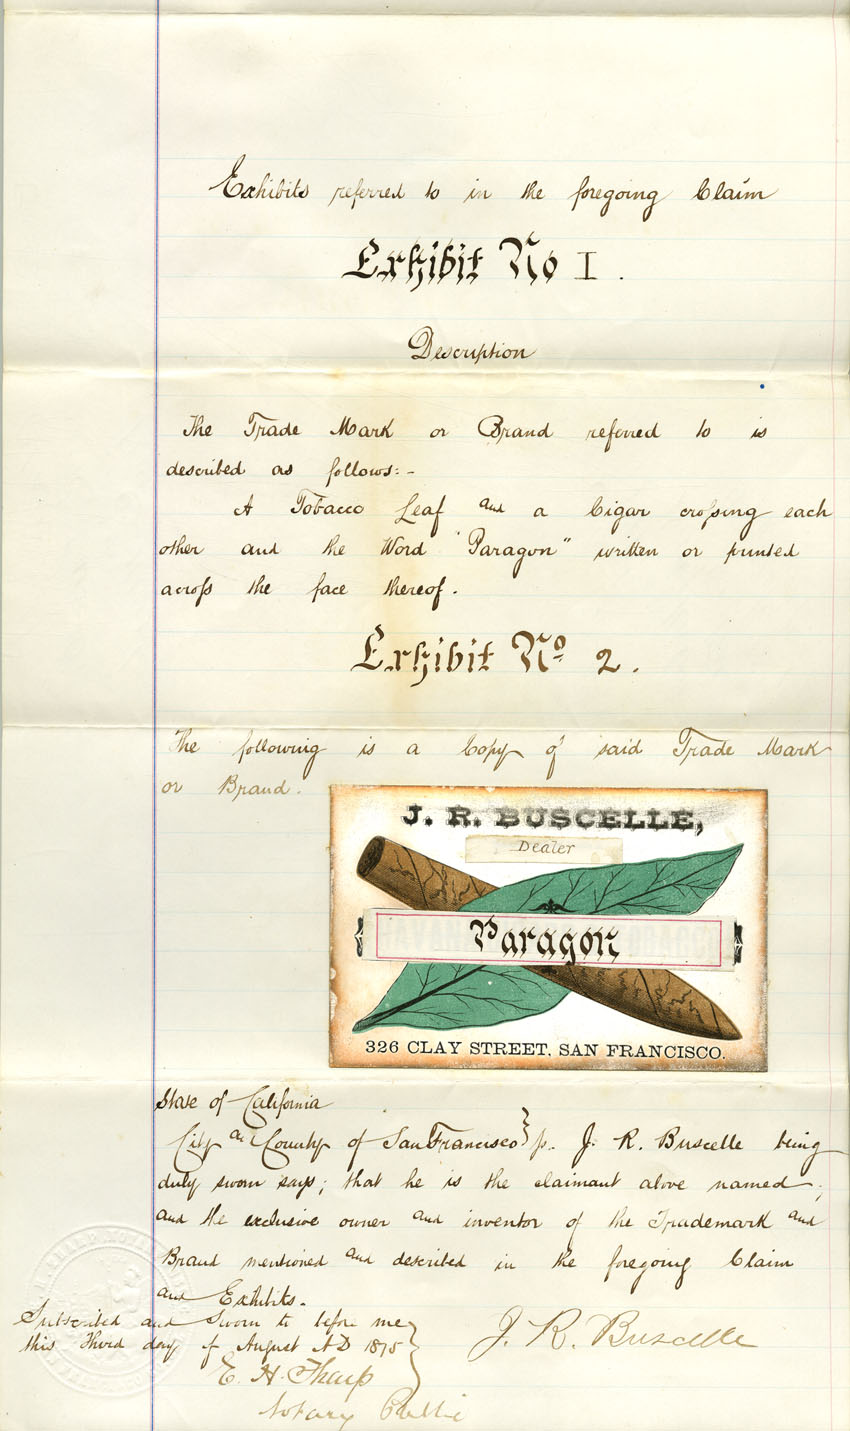 Exhibits referred to in the foregoing Claim
Exhibit No I.
Description
The Trade Mark or Brand referred to is
described as follows:-
A Tobacco Leaf and a Cigar crossing each
other and the Word "Paragon" written or printed
across the face thereof.
Exhibit No 2.
The following is a Copy of said Trade Mark
or Brand.
J. R. BUSCELLE,
Dealer
Paragon
326 CLAY STREET, SAN FRANCISCO.
State of California
City and County of San Francisco } ss. J. R. Buscelle being
duly sworn says; that he is the claimant above named;
and the exclusive owner and inventor of the Trademark and
Brand mentioned and described in the foregoing Claim
and Exhibits.
Subscribed and Sworn to before me
this Third day of August AD 1875
J. R. Buscelle
E. H. Tharp
Notary Public